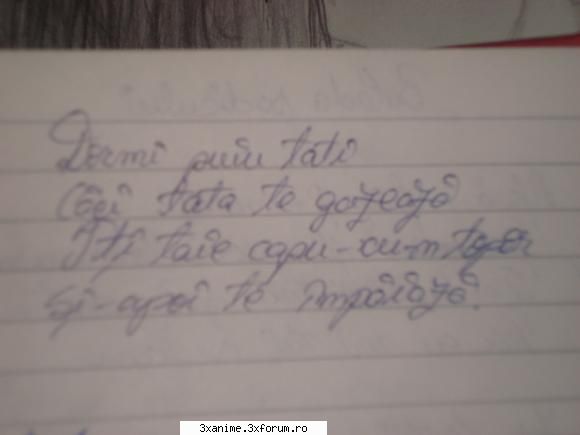 Dormi puiu tati
Căci tata te găzează
Îți taie capu-cu-n topor
Și-apoi te împăiază.
3xanime.3xforum.ro